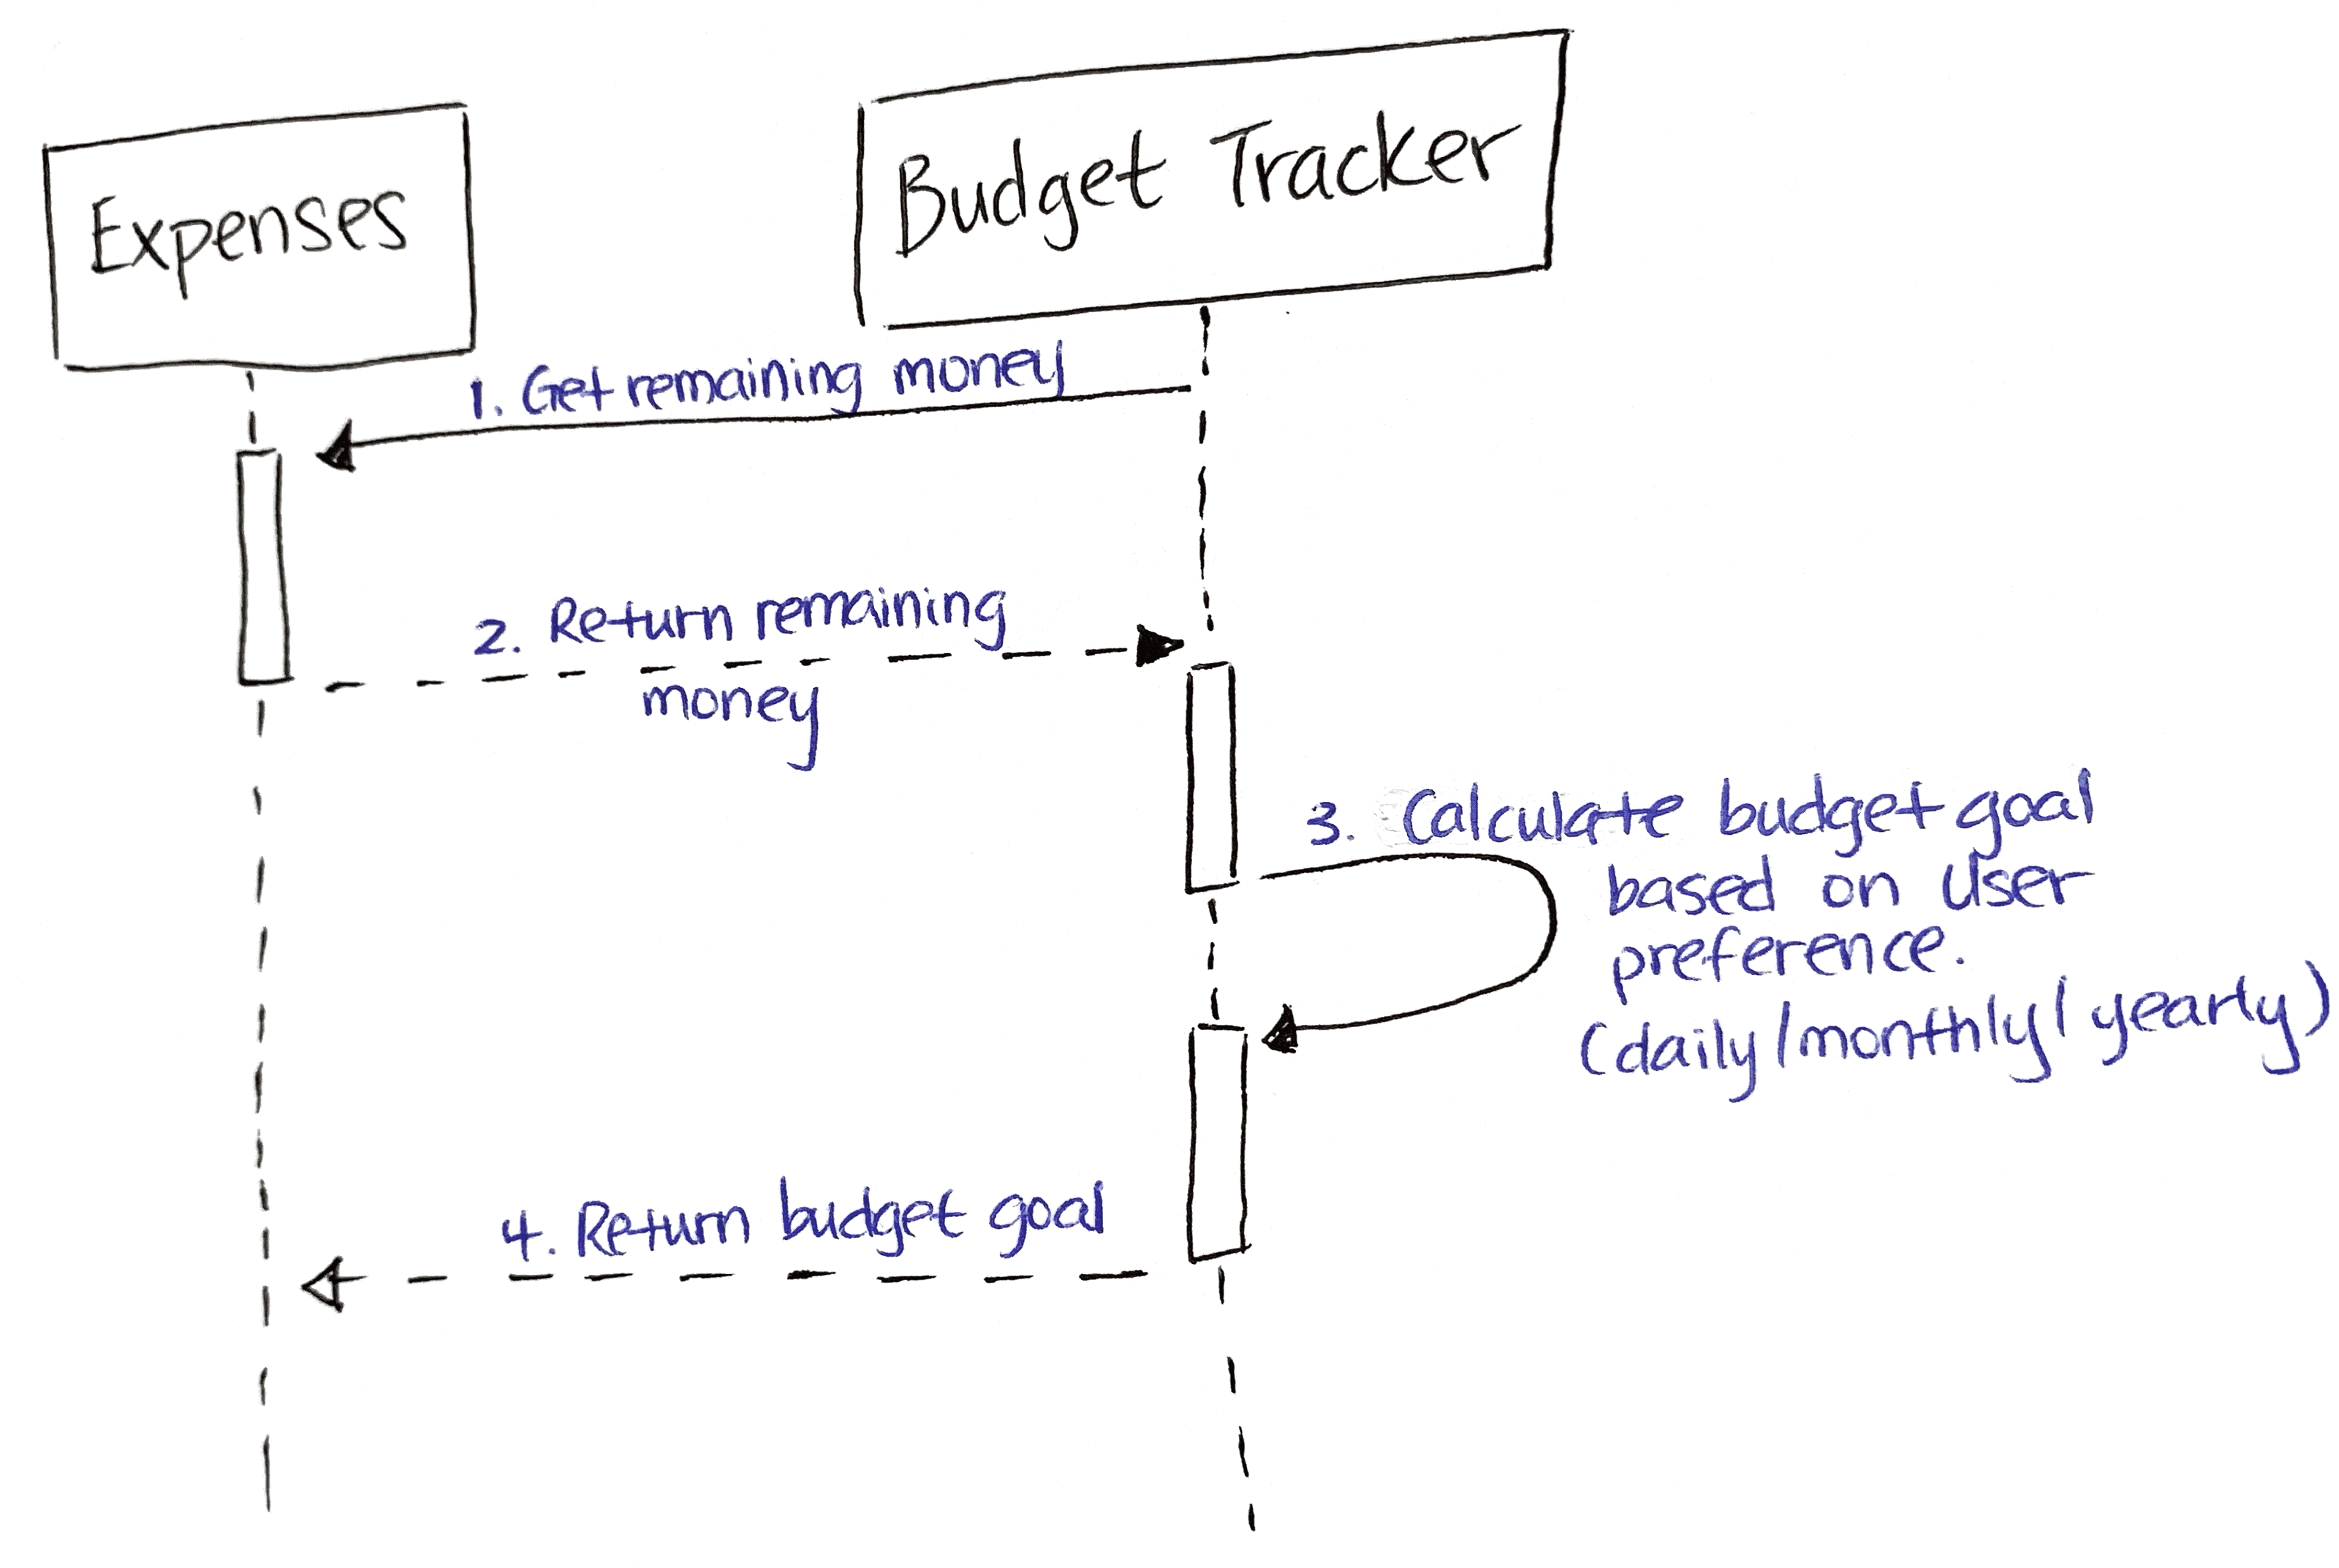 Expenses
Budget Tracker
1. Get remaining money
2. Return remaining
money
3. Calculate budget goal
based on user
preference.
(daily/monthly/yearly)
4. Return budget goal